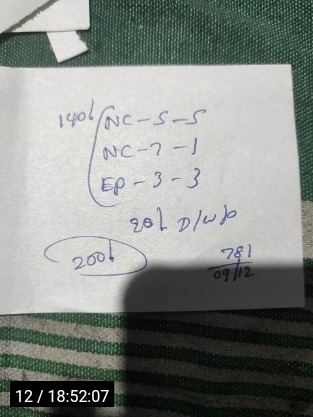 140l NC - 5 - 5
NC - 7 - 1
EP - 3 - 3
20l D/W/P
200l
781
09/12
12 / 18:52:07